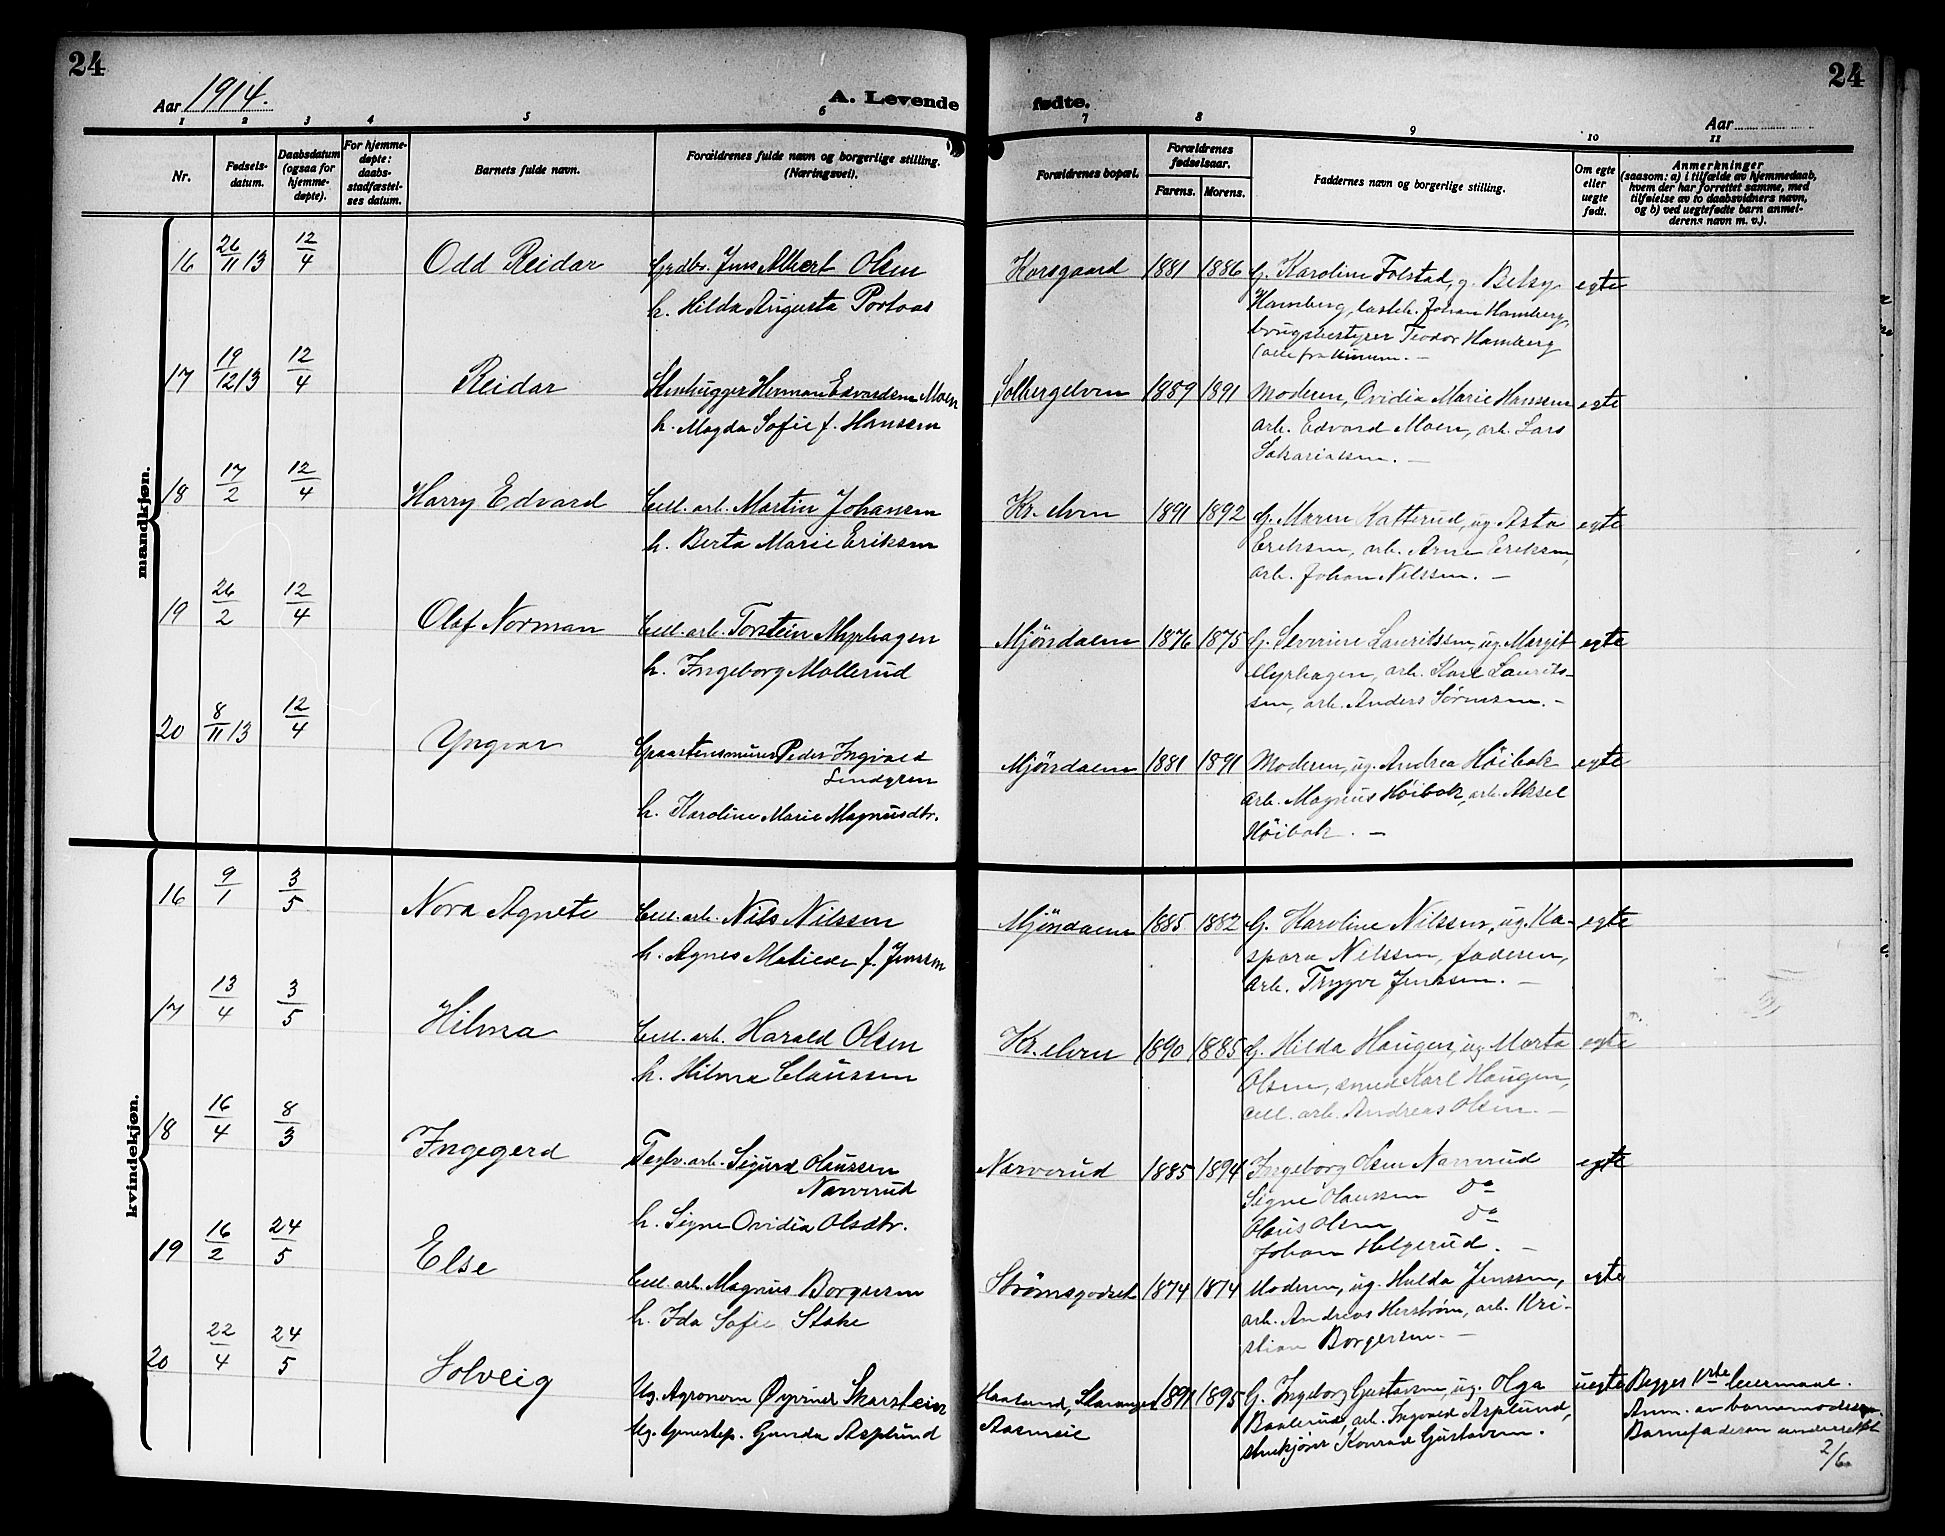 24
24
Aar 1914.
A. Levende fødte.
Aar
1 2 3 4 5 6 7 8 9 10 11
Nr.
Fødsels-
datum.
Daabsdatum
(ogsaa for
hjemme-
døpte).
For hjemme-
døpte:
daabs-
stadfæstel-
ses datum.
Barnets fulde navn.
Forældrenes fulde navn og borgerlige stilling.
(Næringsvei).
Forældrenes bopæl.
Forældrenes
fødselsaar.
Farens. Morens.
Faddernes navn og borgerlige stilling.
Om egte
eller
uegte
født.
Anmerkninger
(saasom: a) i tilfælde av hjemmedaab,
hvem der har forrettet samme, med
tilføielse av to daabsvidners navn,
og b) ved uegtefødte barn anmel-
derens navn m. v.).
mandkjøn.
16 26/11 13 12/4 Odd Reidar Grdbr. Jens Albert Olsen Korsgaard 1881 1886 G. Karoline Tolstad, g. Betsy egte
h. Hilda Augusta Portaas Hamberg, Johan Hamberg,
brugsbestyrer Teodor Hamberg
(alle fra
17 19/12 13 12/4 Reidar Stenhugger Herman Edvardsen Moen Solbergelven 1889 1891 Moderen, Ovidia Marie Hansen egte
h. Magda Sofie f. Hansen arb. Edvard Moen, arb. Lars
Sakariassen. —
18 17/2 12/4 Harry Edvard Cell. arb. Martin Johansen Kr. elven 1891 1892 G. Maren Katterud, ug. Asta egte
h. Berta Marie Eriksen Eriksen, arb. Arne Eriksen,
arb. Johan Nilssen. —
19 26/2 12/4 Olaf Norman Cell. arb. Torstein Myrhagen Mjöndalen 1876 1875 G. Severine Lauritssen, ug. Margit egte
h. Ingeborg Mollerud Myrhagen, arb. Karl Laurits-
sen, arb. Anders Sörensen. —
20 8/11 13 12/4 Yngvar Graastensmurer Peder Ingvald Mjöndalen 1881 1891 Moderen, ug. Andrea Höibak egte
Lindgren arb. Magnus Höibak, arb. Aksel
h. Karoline Marie Magnusdtr. Höibak. —
kvindekjøn.
16 9/1 3/5 Nora Agnete Cell. arb. Nils Nilssen Mjöndalen 1885 1882 G. Karoline Nilssen, ug. Ka- egte
h. Agnes Matilde f. Jenssen spara Nilssen, faderen,
arb. Trygve Jenssen. —
17 13/4 3/5 Hilma Cell. arb. Harald Olsen Kr. elven 1890 1885 G. Hilda Haugen, ug. Marta egte
h. Hilma Claussen Olsen, smed Karl Haugen,
cell. arb. Andreas Olsen. —
18 16/4 8/3 Ingegerd Teglv. arb. Sigurd Olaussen Narverud 1885 1894 Ingeborg Olsen Narverud egte
Narverud Signe Olaussen Do
h. Signe Ovidia Olsdtr. Olaus Olsen Do
Johan Helgerud. —
19 16/2 24/5 Else Cell. arb. Magnus Borgersen Strömsgodset 1874 1874 Moderen, ug. Hulda Jenssen, egte
h. Ida Sofie Stake arb. Andreas Herström, arb. Kri-
stian Borgersen. —
20 22/4 24/5 Solveig Ug. Agronom Øyvind Skarstein Haaland, Stavanger 1891 1895 G. Ingeborg Gustavsen, ug. Olga uegte Begges 1ste leiermaal.
Ug. tjenestep. Gunda Asplund Aasmeie Baalerud, arb. Ingvald Asplund, Anm. av barnemoderen.
Konrad Gustavsen. Barnefaderen underrettet
2/6